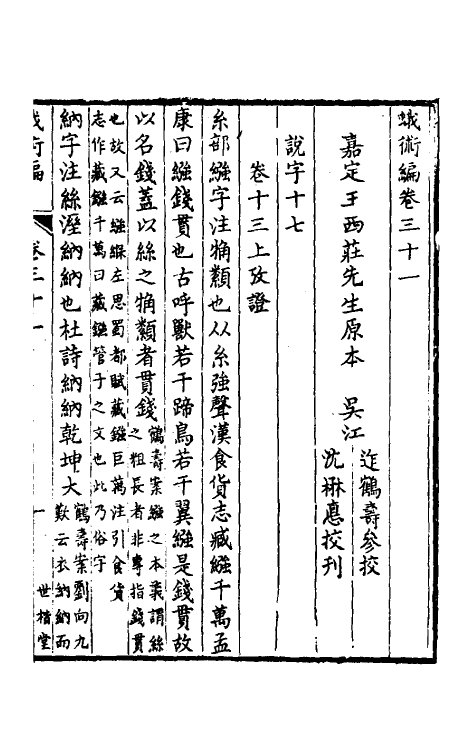 蛾術編卷三十一
嘉定王西莊先生原本 吳江
迮鶴壽參挍
沈楙悳挍刊
說字十七
卷十三上攷證
糸部繦字注觕纇也从糸強聲漢食貨志臧繦千萬孟
康曰繦錢貫也古呼獸若干蹄鳥若干翼繦是錢貫故
以名錢蓋以絲之觕纇者貫錢
鶴壽案繦之本義謂絲
之粗長者非專指錢貫
也故又云繦緥左思蜀都賦藏鏹巨萬注引食貨
志作藏鏹千萬曰藏鏹管子之文也此乃俗字
納字注絲溼納納也杜詩納納乾坤大
鶴壽案劉向九
歎云衣納納而
蛾術編 卷三十一 一 世楷堂